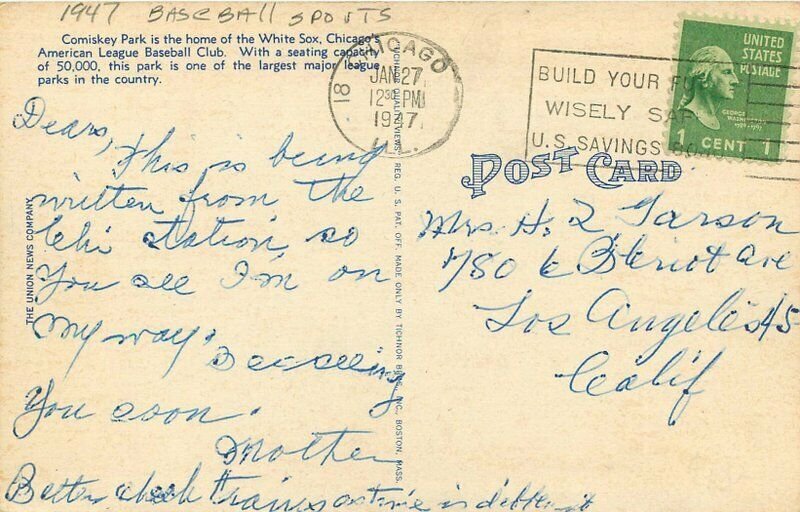 1947 BASEBALL SPORTS
Comiskey Park is the home of the White Sox, Chicago's
American League Baseball Club. With a seating capacity
of 50,000, this park is one of the largest major league
parks in the country.
CHICAGO
18
JAN 27
12 30 PM
1947
ILL.
BUILD YOUR
WISELY
U.S. SAVINGS
UNITED
STATES
POSTAGE
GEORGE
WASHINGTON
1 CENT 1
POST CARD
Dears,
This is being
written from the
Chi station, so
You see I'm on
My way.
Bee seeing
You soon.
Mother
Better check trains as time is
Mrs. H. L Garson
Ave
Los Angeles 45
Calif
THE UNION NEWS COMPANY
TICHNOR QUALITY VIEWS, REG. U. S. PAT. OFF. MADE ONLY BY TICHNOR BROS., INC., BOSTON, MASS.